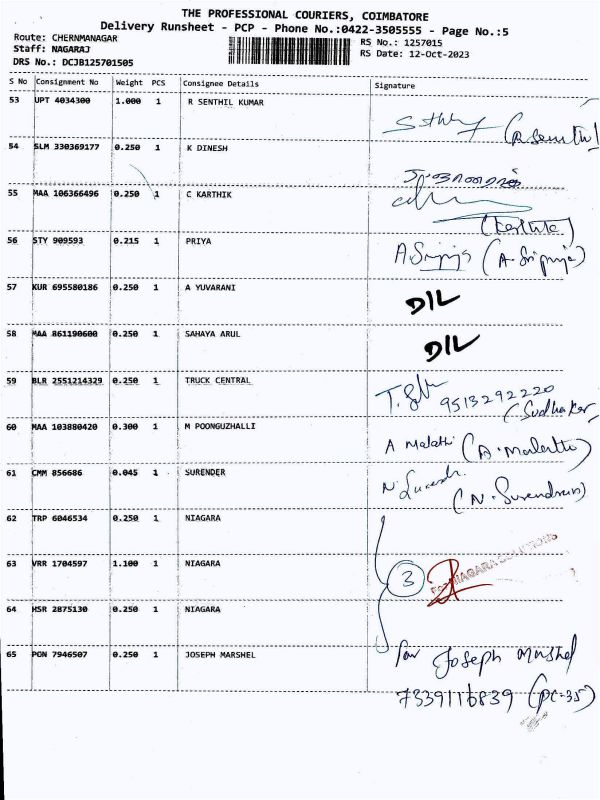 THE PROFESSIONAL COURIERS, COIMBATORE
Delivery Runsheet - PCP - Phone No.:0422-3505555 - Page No.:5
Route: CHERNMANAGAR
Staff: NAGARAJ
DRS No.: DCJB125701505
RS No.: 1257015
RS Date: 12-Oct-2023
S No Consignment No Weight PCS Consignee Details Signature
53 UPT 4034300 1.000 1 R SENTHIL KUMAR
54 SLM 330369177 0.250 1 K DINESH
55 MAA 106366496 0.250 1 C KARTHIK
(Karthik)
56 STY 909593 0.215 1 PRIYA
A Sripriya (A. Sripriya)
57 KUR 695580186 0.250 1 A YUVARANI
D/L
58 MAA 861190600 0.250 1 SAHAYA ARUL
D/L
59 BLR 2551214329 0.250 1 TRUCK CENTRAL
9513292220
(Sudhakar)
60 MAA 103880420 0.300 1 M POONGUZHALLI
A Malathi
61 CMM 856686 0.045 1 SURENDER
(N. Surendran)
62 TRP 6046534 0.250 1 NIAGARA
63 VRR 1704597 1.100 1 NIAGARA
3
For NIAGARA SOLUTIONS
64 HSR 2875130 0.250 1 NIAGARA
65 PON 7946507 0.250 1 JOSEPH MARSHEL
for Joseph Marshel
7339116839 (PC-35)